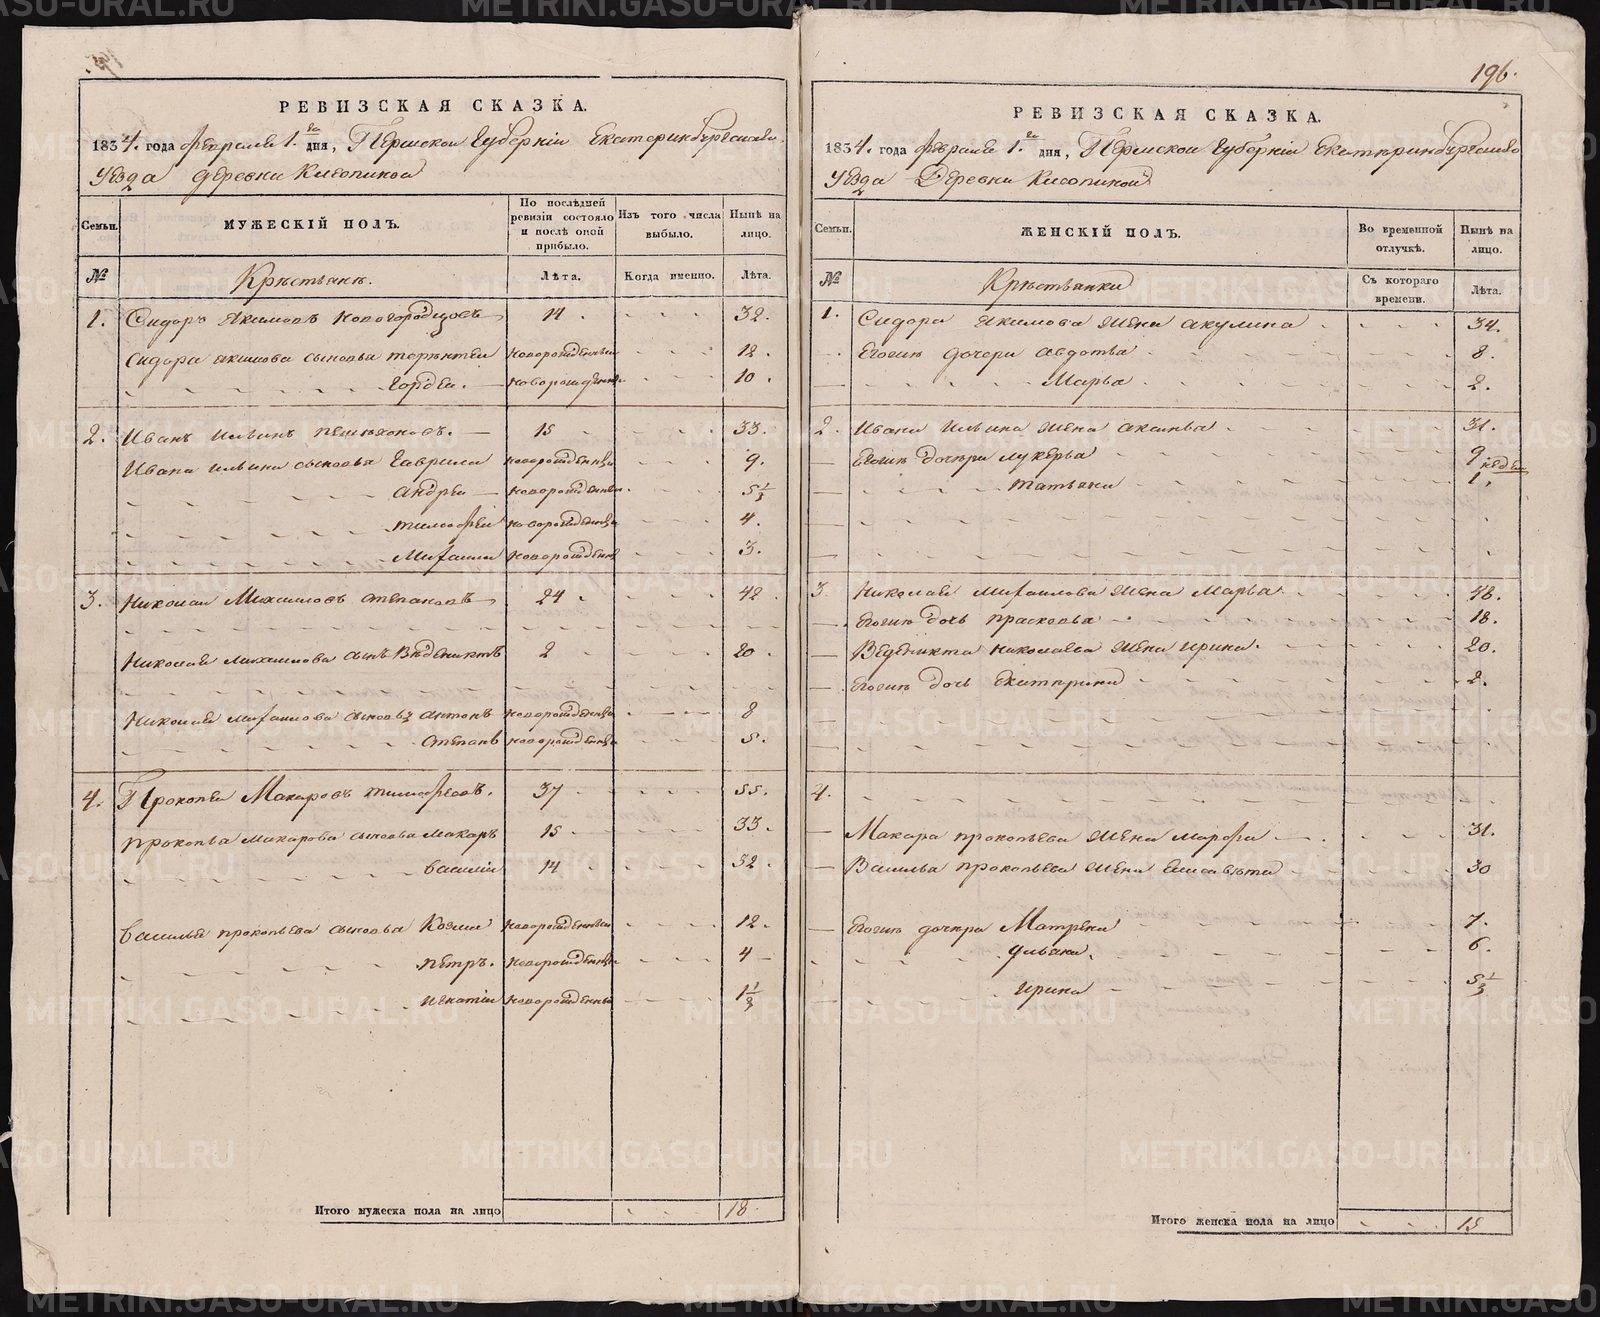 196.
РЕВИЗСКАЯ СКАЗКА.
1834. года февраля 1.го дня, Пермской Губернiи Екатеринбургскаго
Уезда деревни
Семьи. МУЖЕСКIЙ ПОЛЪ. По послѣдней ревизiи состояло и послѣ оной прибыло. Изъ того числа выбыло. Нынѣ на лицо.
№ Крѣстьянѣ. Лѣта. Когда именно. Лѣта.
1. Сидоръ Якимовъ Новогородцовъ 14. 32.
Сидора Якимова сыновья терѣнтеи новорожденныи 12.
Гордеи. новорожденны 10.
2. Иванъ Ильинъ пешѣхоновъ. 15 33.
Ивана Ильина сыновья Гаврила новорожденны 9.
Андреи новорожденны 5 1/3
тимофеи новорожденны 4.
Михаила новорожден 3.
3. Николаи Михаиловъ степановъ 24 42.
Николая михаилова сынъ Вѣдениктъ 2 20.
Николая михаилова сыновья антонъ новорожденны 8
степанъ новорожденны 5.
4. Прокопеи Макаровъ тимофеевъ. 37 55.
прокопья макарова сыновья макаръ 15 33.
василiи 14 32.
василья прокопьева сыновья Козма новорожденныи 12.
пѣтръ. новорожденны 4
игнатiи новорожденны 1 1/3
Итого мужеска пола на лицо 18.
РЕВИЗСКАЯ СКАЗКА.
1834. года февраля 1.го дня, Пермской Губернiи Екатеринбургскаго
Уезда Деревни
Семьи. ЖЕНСКIЙ ПОЛЪ. Во временной отлучкѣ. Нынѣ на лицо.
№ Крѣстьянки Съ котораго времени. Лѣта.
1. Сидора якимова жена акулина 34.
Егоже дочери авдотья 8.
Марья 2.
2. Ивана Ильина жена аксинья 31.
Егоже дочѣри лукерья 9
татьяна 1. недел
3. Николая михаилова жена Марья 48.
Егоже дочь прасковья 18.
Ведѣникта николаева жена ирина. 20.
Егоже дочь Екатерина 2.
4.
Макара прокопьева жена марфа 31.
Василья прокопьева жена елисавѣта 30
Егоже дочѣри Матрена 7.
ульяна. 6.
ирина 5 1/3
Итого женска пола на лицо 15
METRIKI.GASO-URAL.RU